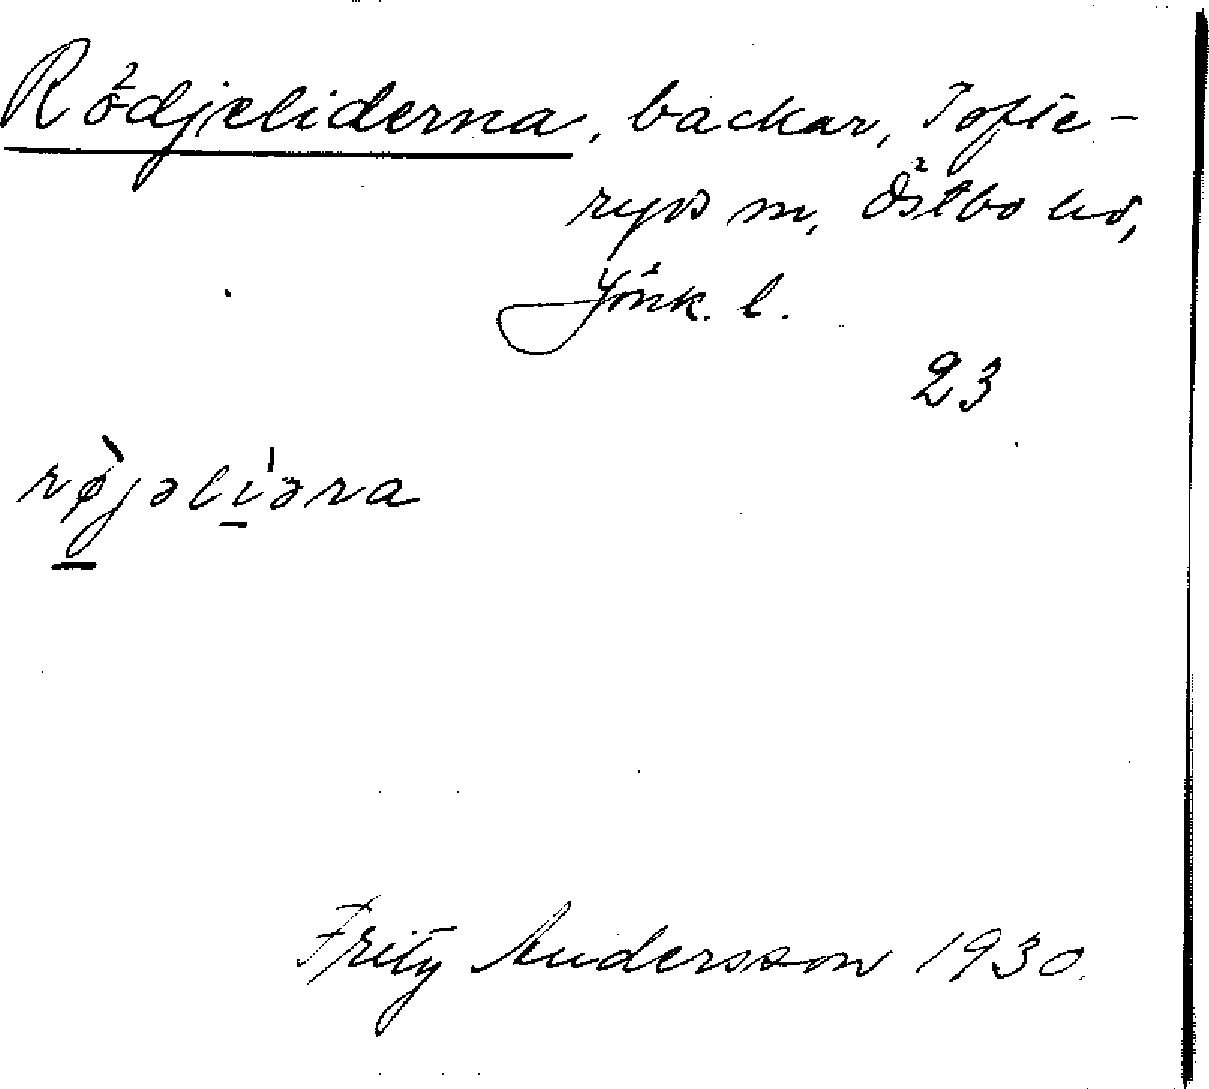 Rödjeliderna, backar, Tofte-
ryds m, Östbo hd,
Jönk. l.
23
rø̀jəli̍əra
Fritz Andersson 1930.